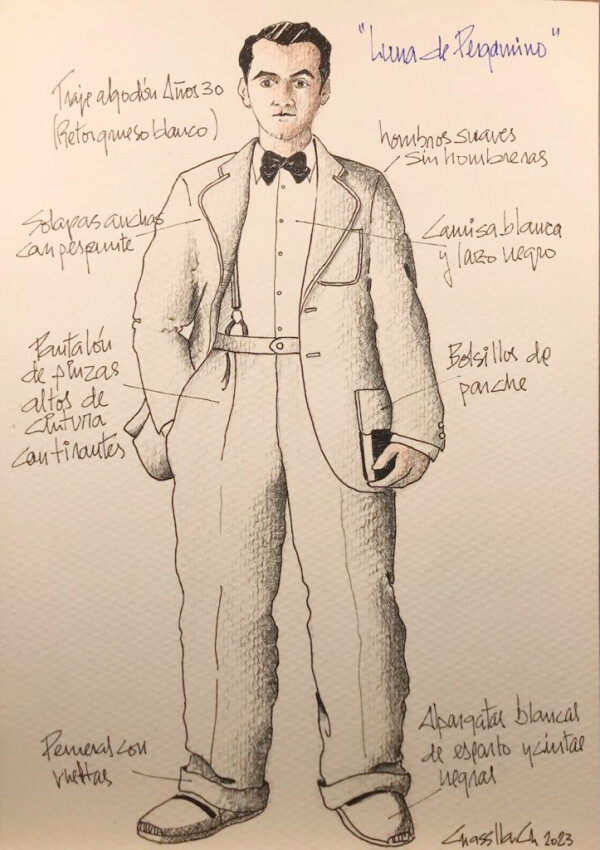 "Luna de Pergamino"
Traje algodón Años 30
(Retor grueso blanco)
hombros suaves
sin hombreras
Solapas anchas
con pespunte
Camisa blanca
y lazo negro
Pantalón
de pinzas
altos de
cintura
con tirantes
Bolsillos de
parche
Perneras con
vueltas
Alpargatas blancas
de esparto y cintas
negras
2023